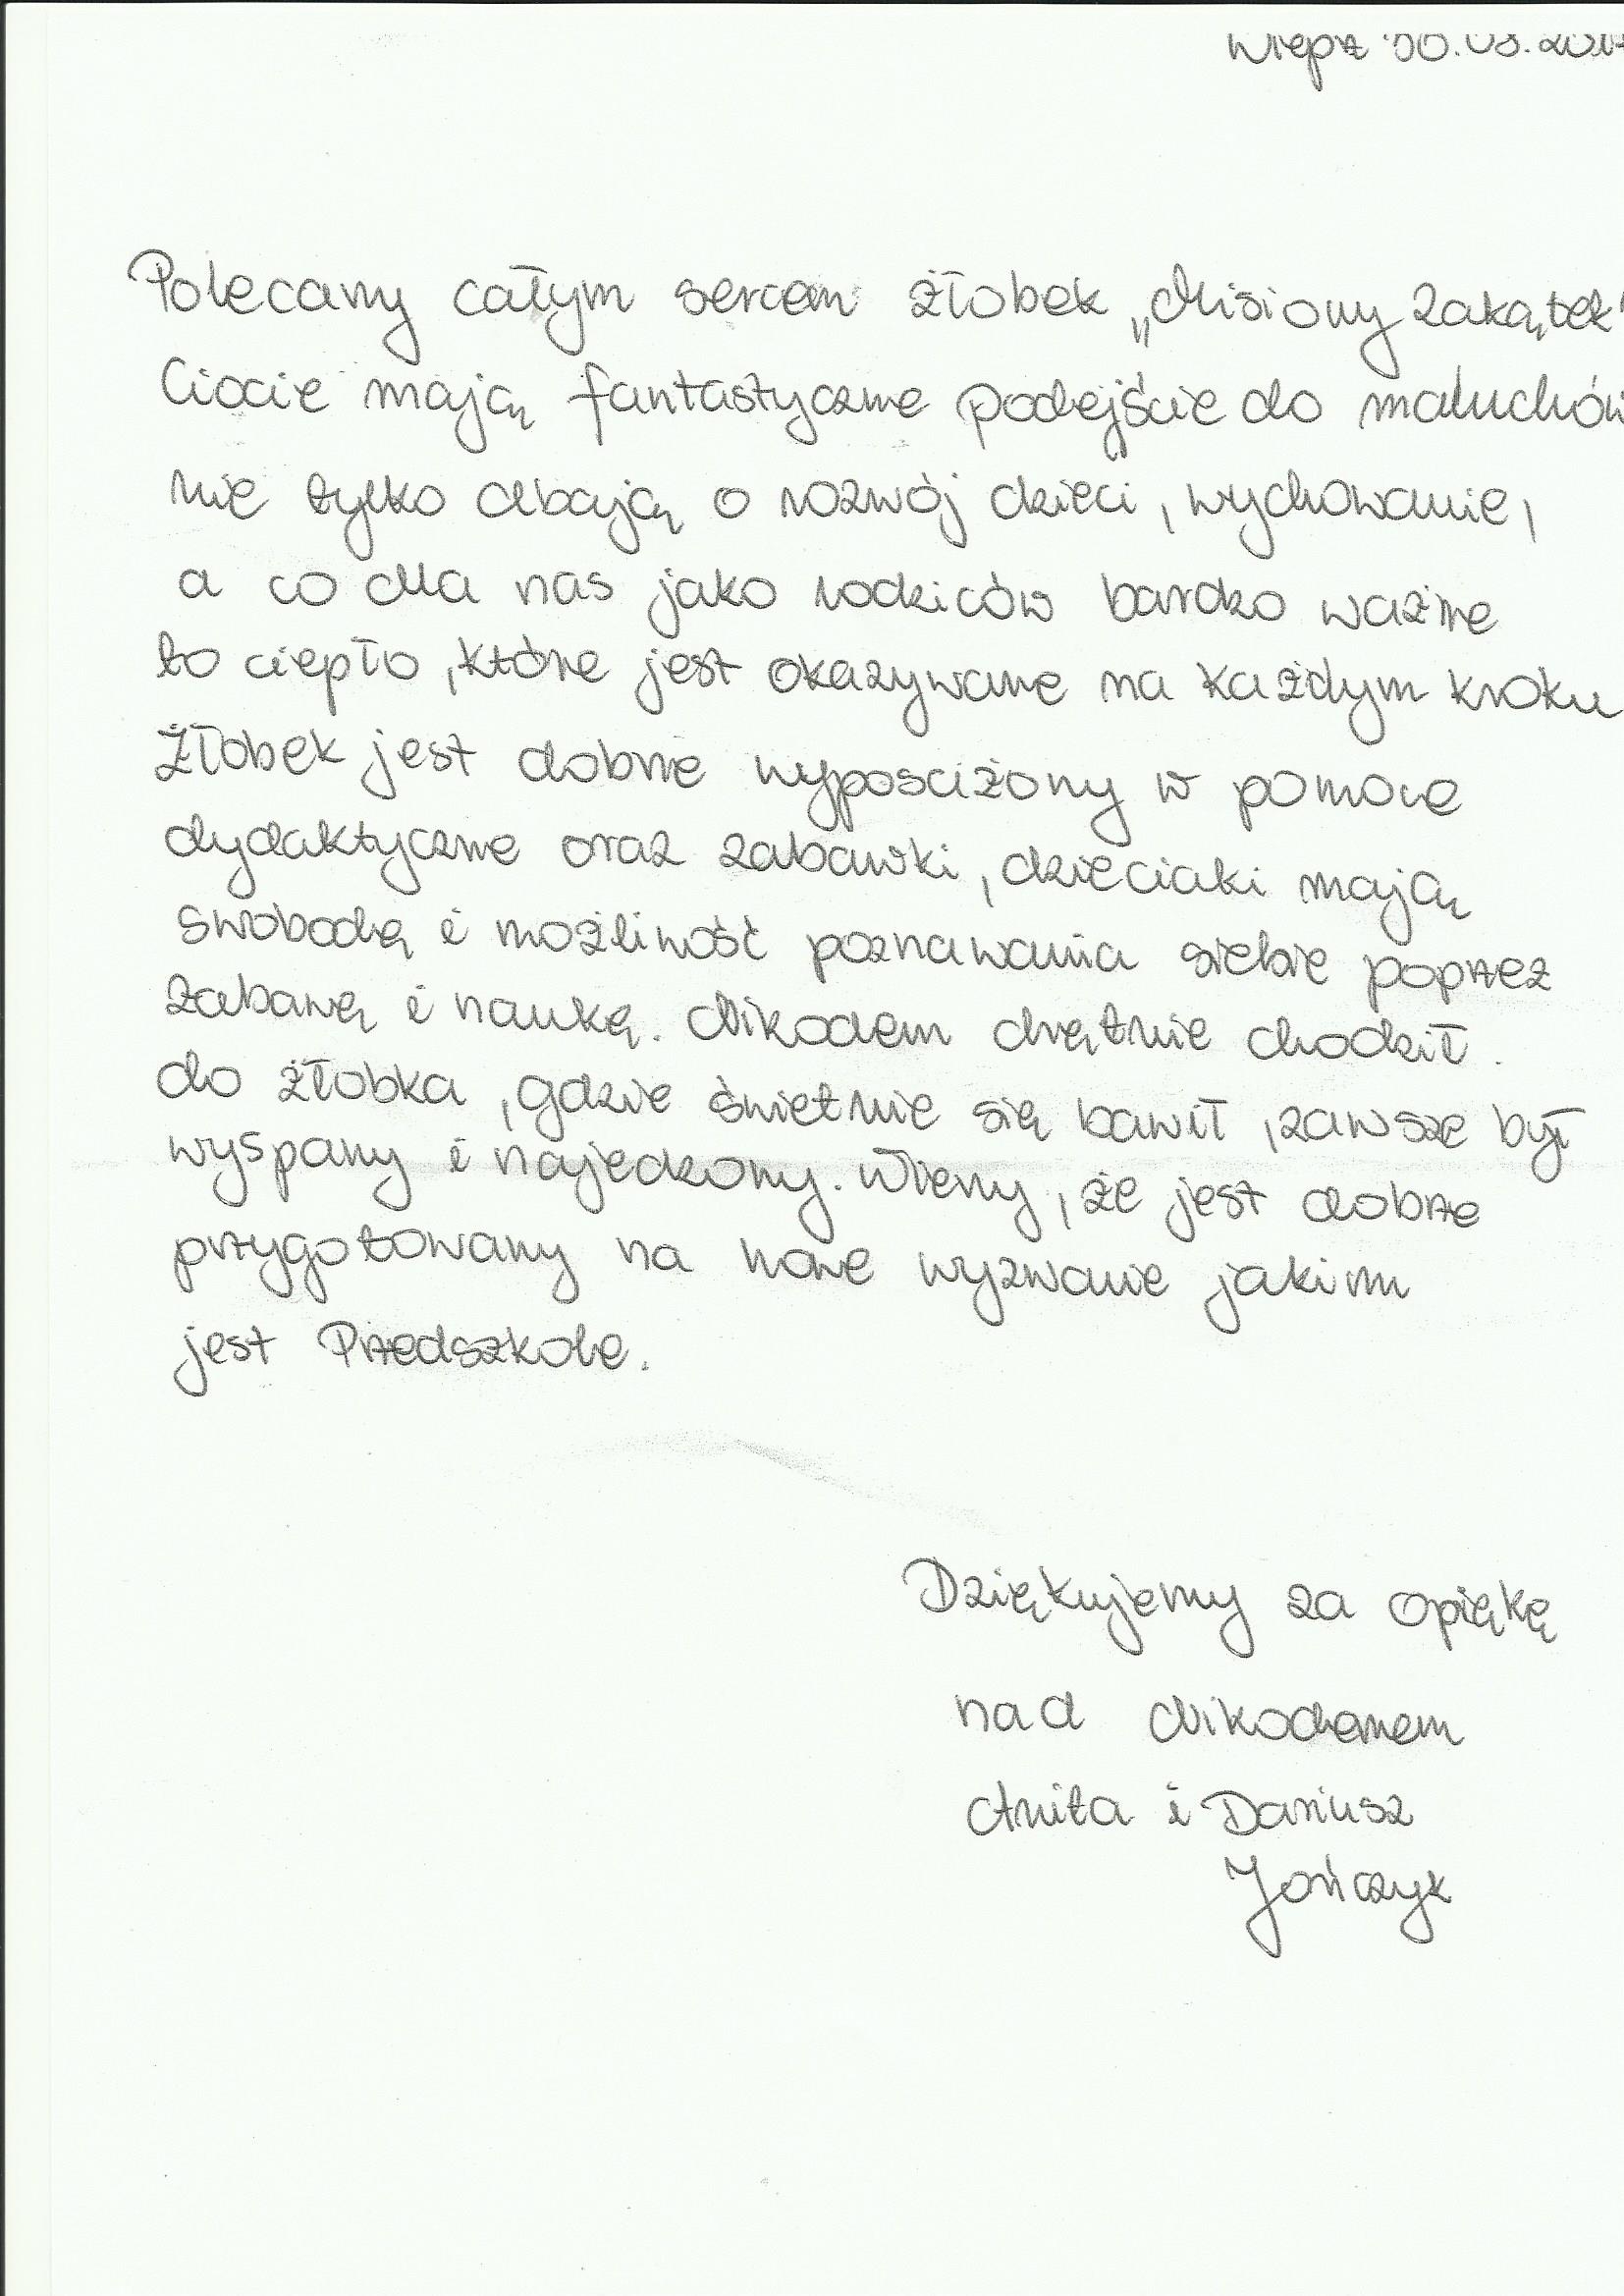 Wieprz 30.08.201
Polecamy całym sercem żłobek „Misiowy Zakątek"
Ciocie mają fantastyczne podejście do maluchów
nie tylko dbają o rozwój dzieci, wychowanie,
a co dla nas jako rodziców bardzo ważne
to ciepło, które jest okazywane na każdym kroku
Żłobek jest dobrze wyposciżony w pomoce
dydaktyczne oraz zabawki, dzieciaki mają
swobodę i możliwość poznawania siebie poprzez
zabawę i naukę. Nikodem chętnie chodził.
do żłobka, gdzie świetnie się bawił, zawsze był
wyspany i najedzony. Wiemy, że jest dobrze
przygotowany na nowe wyzwanie jakim
jest Przedszkole.
Dziękujemy za opiękę
nad Nikodemem
Anita i Dariusz
Jończyk